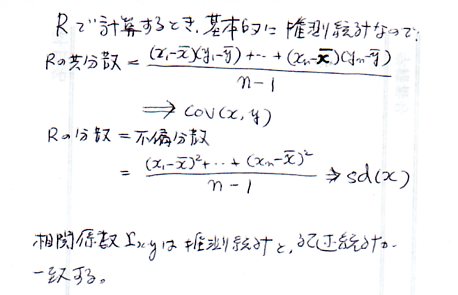 Rで計算するとき、基本的に推測統計なので、
Rの共分散 = (x₁-x̄)(y₁-ȳ)+…+(xₙ-x̄)(yₙ-ȳ) / n-1
⟹ cov(x, y)
Rの分散 = 不偏分散
= (x₁-x̄)²+…+(xₙ-x̄)² / n-1 ⇒ sd(x)
相関係数 rxyは推測統計と、記述統計が
一致する。